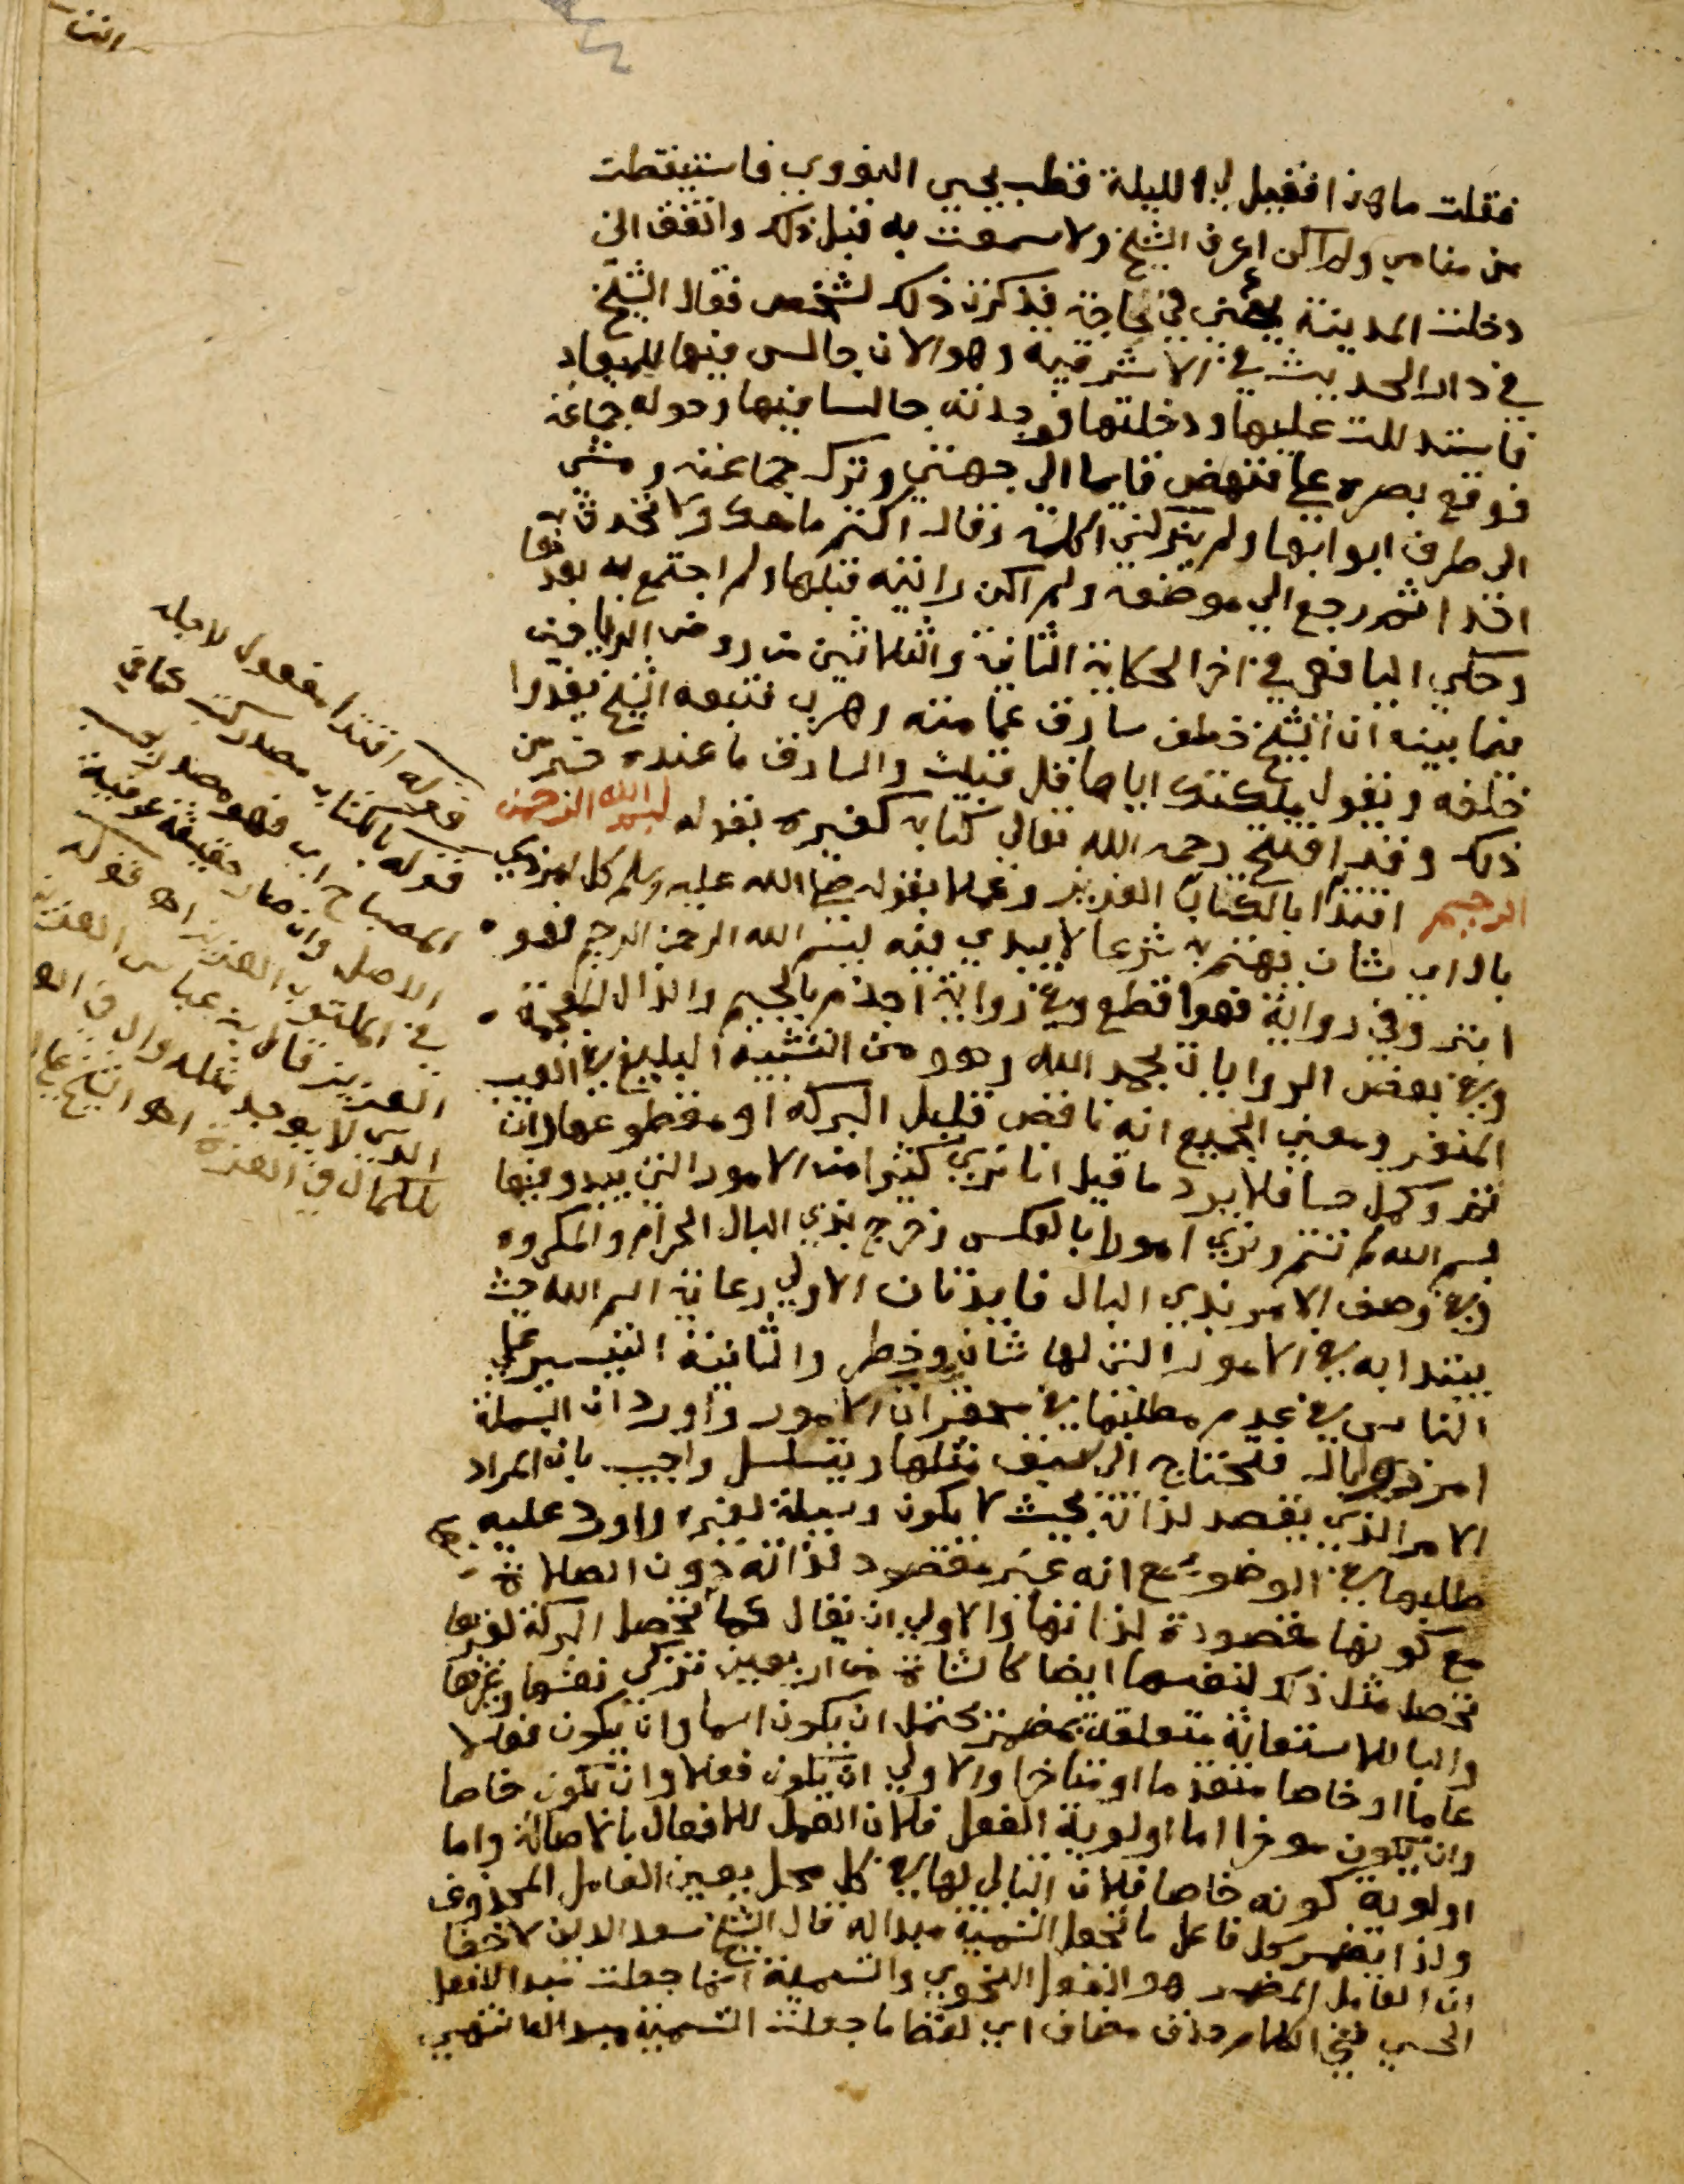 فقلت ما هذا فقيل لي الليلة قطب يحيى النووي فاستيقظت
من منامي ولم اكن اعرف الشيخ ولا سمعت به قبل ذلك واتفق اني
دخلت المدينة يعني في حاجة فذكرت ذلك لشخص فقال الشيخ
في دار الحديث في الاشرفية وهو الان جالس فيها للميعاد
فاستدللت عليها ودخلتها فوجدته جالسا فيها وحوله جماعة
فوقع بصره علي فنهض قايما الى جهتي وترك جماعته ومشى
الى طرف ابوابها ولم يتركني اكلمه وقال اكتم ما معك ولا تحدث به
احدا ثم رجع الي موضعه ولم اكن رايته قبلها ولم اجتمع به بعدها
وحكي اليافعي في اخر الحكاية الثانية والثلاثين من روض الرياحين
فيما بينه ان الشيخ خطف سارق عمامته وهرب فتبعه الشيخ يعدوا
خلفه ويقول ملكتك اياها قل قبلت والسارق ما عنده خبر من
ذلك وقد افتتح رحمه الله تعالي كتابه كغيره بقوله بسم الله الرحمن
الرحيم اقتدا بالكتاب العزيز وعملا بقوله صلى الله عليه وسلم كل امر ذي
بال اي شان يهتم به شرعا لا يبدي فيه ببسم الله الرحمن الرحيم فهو
ابتر وفي رواية فهو اقطع وفي رواية اجذم بالجيم والذال المعجمة
وفي بعض الروايات بحمد الله وهو من التشبيه البليغ في العيب
المنفر ومعني الجميع انه ناقص قليل البركة او مقطوعها وان
تم وكمل حسا فلا يرد ما قيل انا نري كثيرا من الامور التي يبدو فيها
بسم الله لم تتم ونري امورا بالعكس وخرج بذي البال الحرام والمكروه
وفي وصف الامر بذي البال فايدتان الاولي رعاية اسم الله حيث
يبتدا به في الامور التي لها شان وخطر والثانية التيسير على
الناس في عدم مطلبتها في محقرات الامور واورد ان البسملة
امر ذي بال فتحتاج الى سبق مثلها ويتسلسل واجيب بان المراد
الامر الذي يقصد لذاته بحيث لا يكون وسيلة لغيره واورد عليه
طلبها في الوضوء مع انه غير مقصود لذاته دون الصلاة
مع كونها مقصودة لذاتها والاولي ان يقال كما تحصل البركة لغيرها
تحصل مثل ذلك لنفسها ايضا كالشاة من اربعين تزكي نفسها وغيرها
والبا للاستعانة متعلقة بمضمر يحتمل ان يكون اسما وان يكون فعلا
عاما او خاصا متقدما او متاخرا والاولي ان يكون فعلا وان يكون خاصا
وان يكون موخرا اما اولوية الفعل فلان العمل للافعال بالاصالة واما
اولوية كونه خاصا فلان التالي لها في كل محل يعين العامل المحذوف
ولذا يضمر كل فاعل ما تجعل التسمية مبدا له قال الشيخ سعد الدين لا خفا
ان العامل المضمر هو الفعل النحوي والتسمية انما جعلت مبدا للفعل
الحسي ففي الكلام حذف مضاف اي لفظ ما جعلت التسمية مبدا له انتهي
قوله اقتدا مفعول لاجله
قوله بالكتاب مصدر كتب كما في
المصباح اي فهو مصدر بحسب
الاصل وان صار حقيقة عرفية
في المكتوب العزيز اه قوله
العزيز قال ابن عباس العزيز
الذي لا يوجد مثله وال في
للكمال في العزة اهو الشيخ